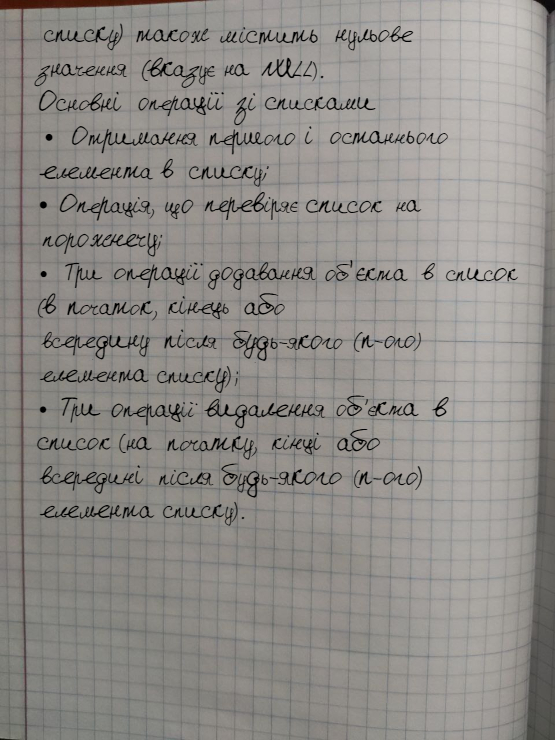 списку) також містить нульове
значення (вказує на NULL).
Основні операції зі списками
• Отримання першого і останнього
елемента в списку;
• Операція, що перевіряє список на
порожнечу;
• Три операції додавання об'єкта в список
(в початок, кінець або
всередину після будь-якого (n-ого)
елемента списку);
• Три операції видалення об'єкта в
список (на початку, кінці або
всередині після будь-якого (n-ого)
елемента списку).